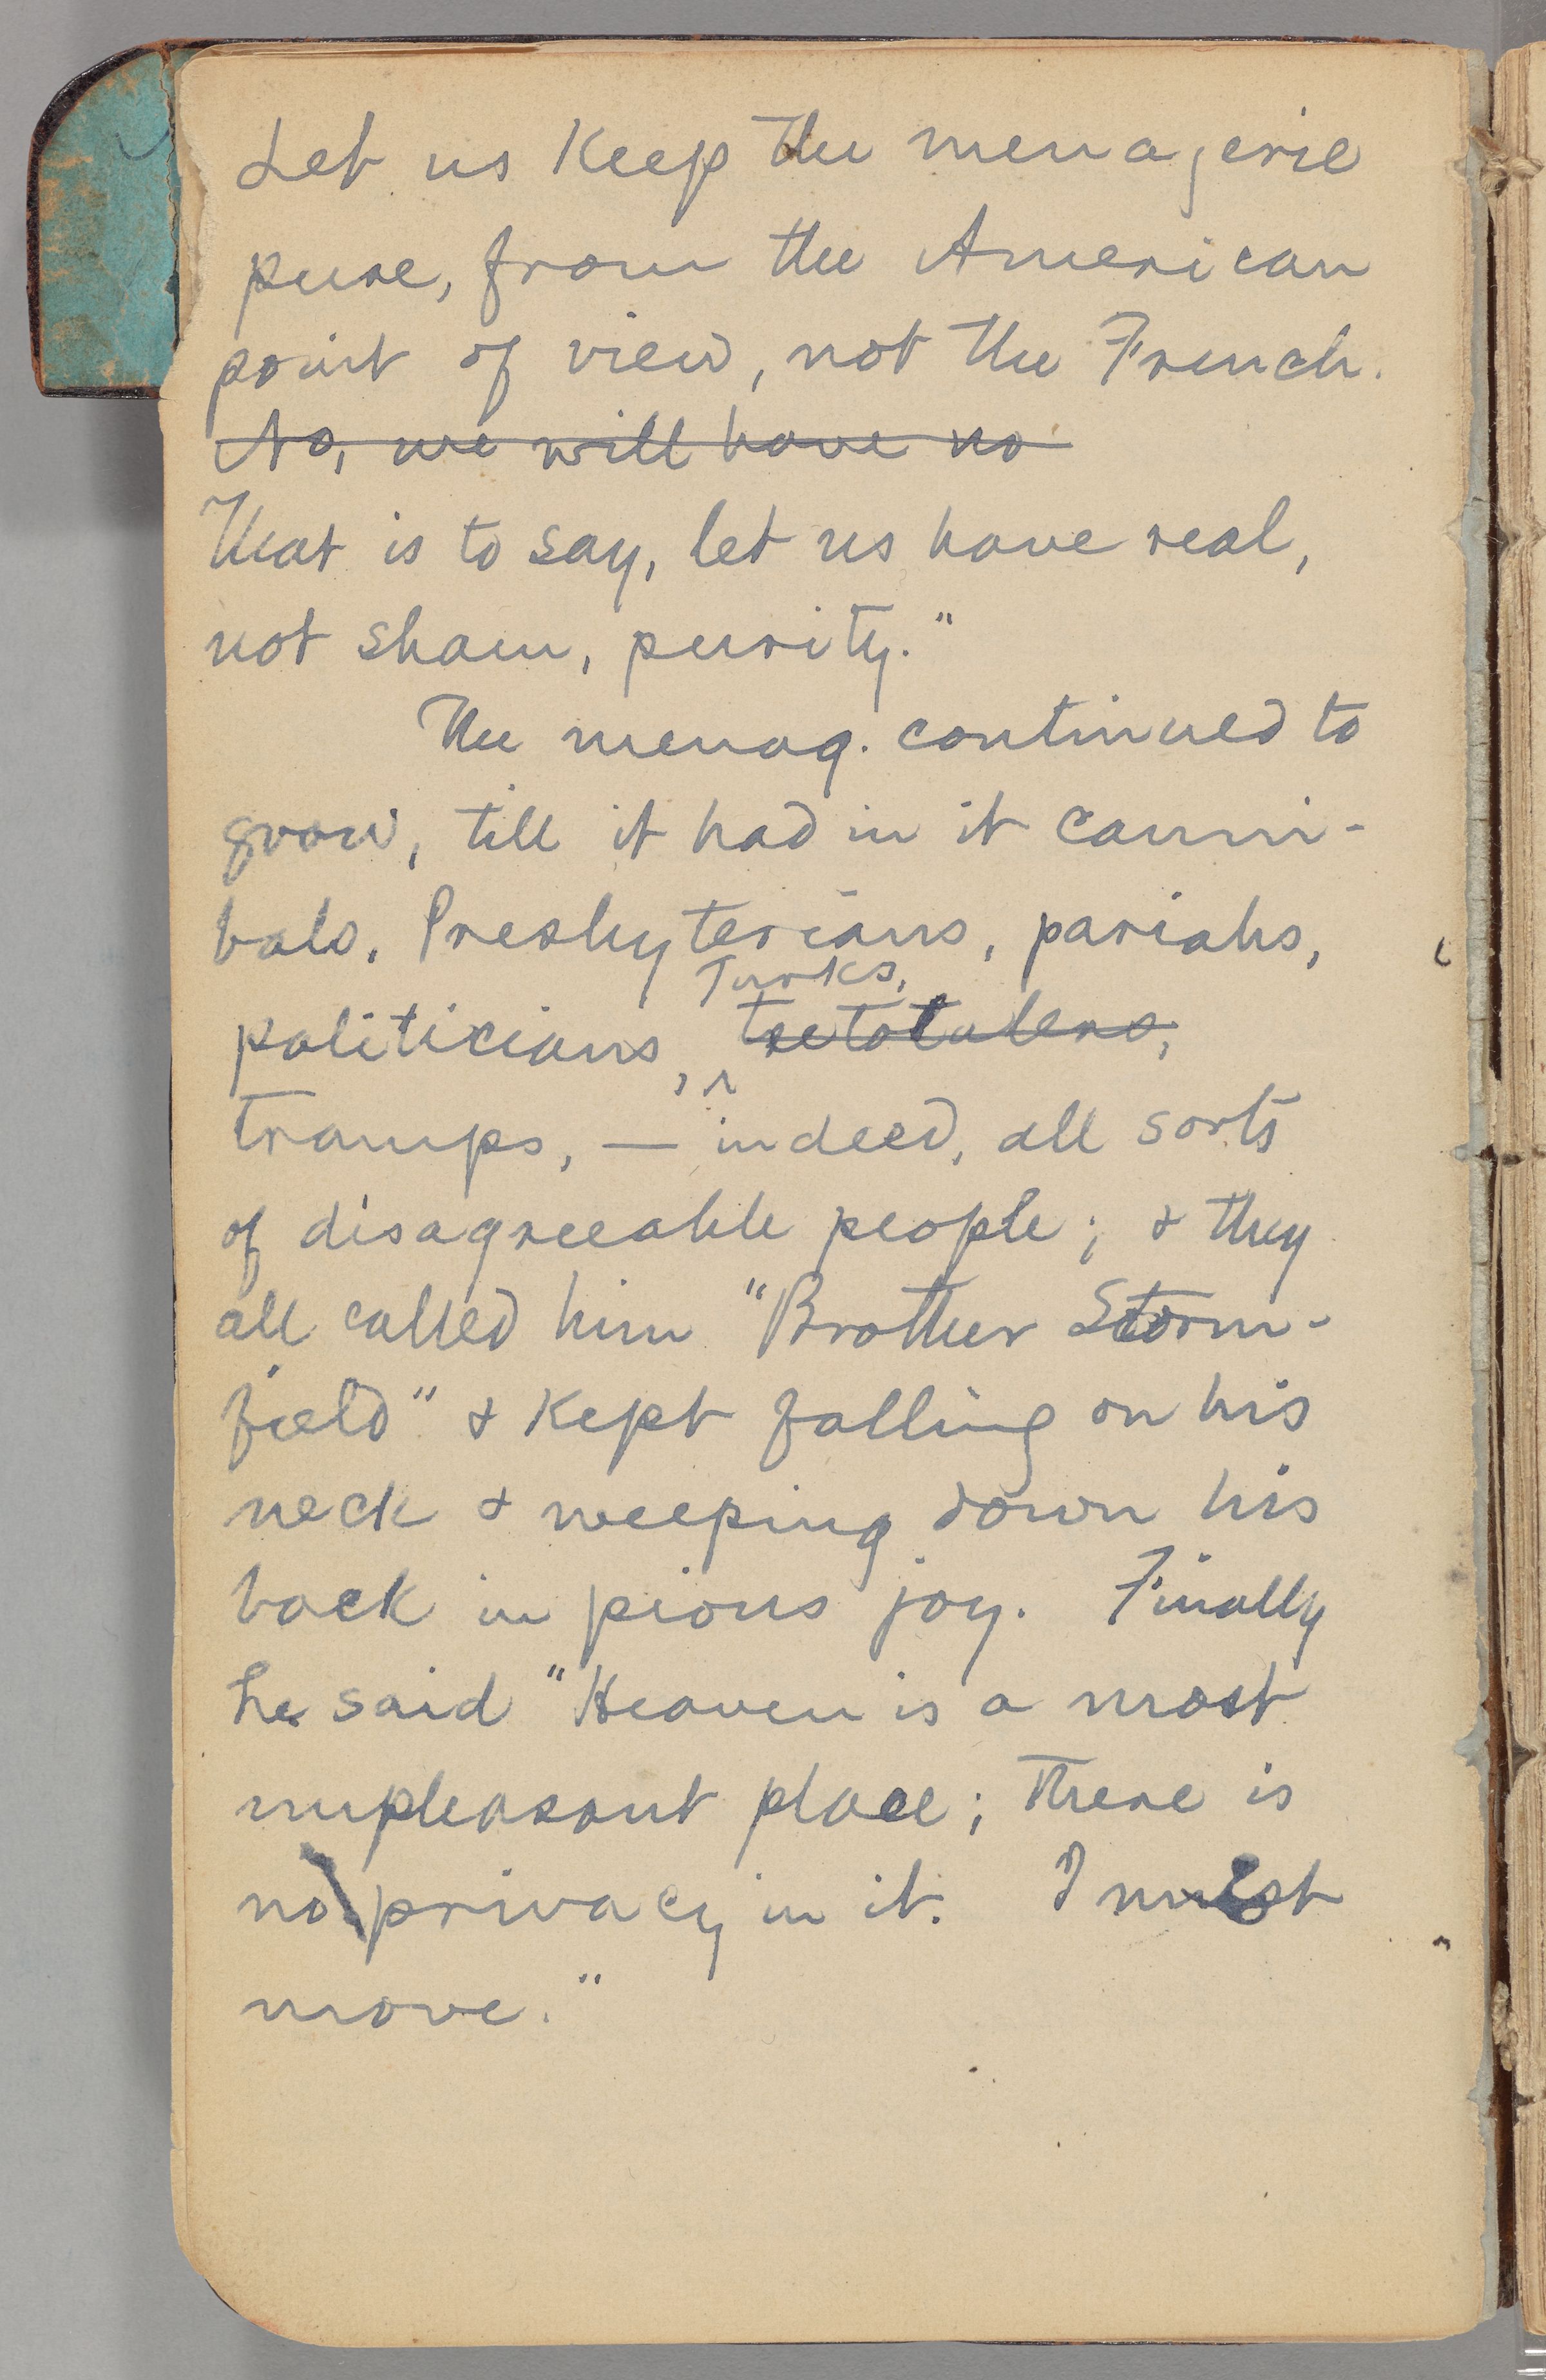 Let us Keep the menagerie
pure, from the American
point of view, not the French.
No, we will have no
That is to say, let us have real,
not sham, purity."
The menag. continued to
grow, till it had in it canni-
bals, Presbyterians, pariahs,
Turks,
politicians, ^ teetotalers,
tramps, — indeed, all sorts
of disagreeable people; & they
all called him "Brother Storm-
field" & Kept falling on his
neck & weeping down his
back in pious joy. Finally
he said "Heaven is a most
unpleasant place; there is
no privacy in it. I must
move."